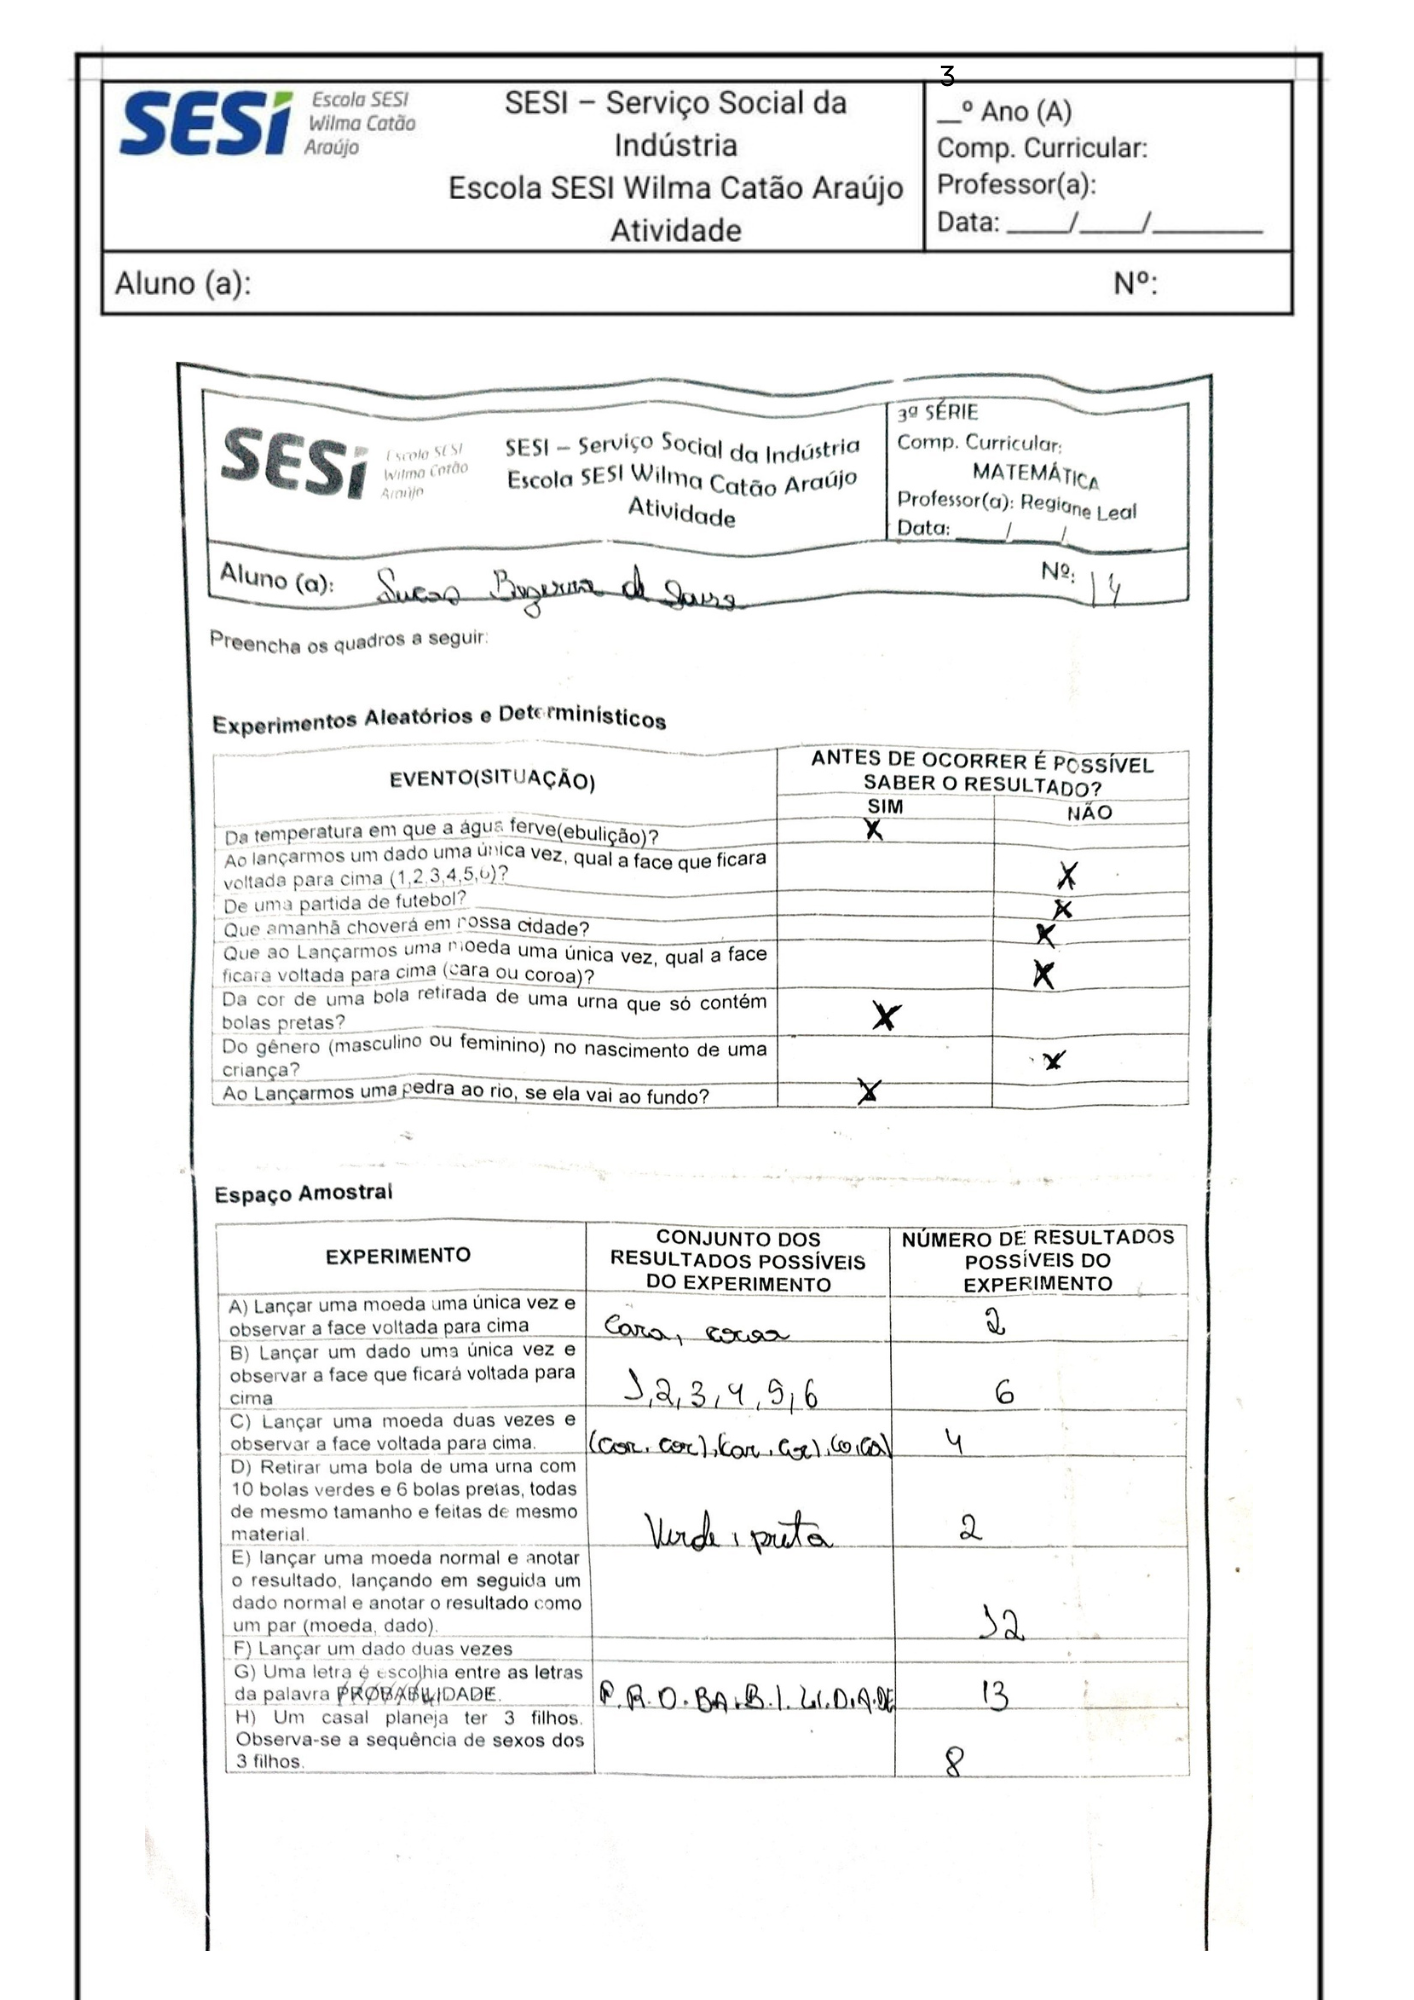 3
SESI Escola SESI
Wilma Catão
Araújo
SESI – Serviço Social da
Indústria
Escola SESI Wilma Catão Araújo
Atividade
__º Ano (A)
Comp. Curricular:
Professor(a):
Data: ____/____/_______
Aluno (a): Nº:
SESI Escola SESI
Wilma Catão
Araújo
SESI – Serviço Social da Indústria
Escola SESI Wilma Catão Araújo
Atividade
3ª SÉRIE
Comp. Curricular:
MATEMÁTICA
Professor(a): Regiane Leal
Data: ____/____/_______
Aluno (a): Lucas Bezerra de Sousa Nº: 14
Preencha os quadros a seguir:
Experimentos Aleatórios e Determinísticos
EVENTO(SITUAÇÃO)
ANTES DE OCORRER É POSSÍVEL
SABER O RESULTADO?
SIM NÃO
Da temperatura em que a água ferve(ebulição)? X
Ao lançarmos um dado uma única vez, qual a face que ficara
voltada para cima (1,2,3,4,5,6)? X
De uma partida de futebol? X
Que amanhã choverá em nossa cidade? X
Que ao Lançarmos uma moeda uma única vez, qual a face
ficara voltada para cima (cara ou coroa)? X
Da cor de uma bola retirada de uma urna que só contém
bolas pretas? X
Do gênero (masculino ou feminino) no nascimento de uma
criança? X
Ao Lançarmos uma pedra ao rio, se ela vai ao fundo? X
Espaço Amostral
EXPERIMENTO
CONJUNTO DOS
RESULTADOS POSSÍVEIS
DO EXPERIMENTO
NÚMERO DE RESULTADOS
POSSÍVEIS DO
EXPERIMENTO
A) Lançar uma moeda uma única vez e
observar a face voltada para cima
Cara, coroa 2
B) Lançar um dado uma única vez e
observar a face que ficará voltada para
cima
1,2,3,4,5,6 6
C) Lançar uma moeda duas vezes e
observar a face voltada para cima.
4
D) Retirar uma bola de uma urna com
10 bolas verdes e 6 bolas pretas, todas
de mesmo tamanho e feitas de mesmo
material.
Verde, preta 2
E) lançar uma moeda normal e anotar
o resultado, lançando em seguida um
dado normal e anotar o resultado como
um par (moeda, dado).
12
F) Lançar um dado duas vezes
G) Uma letra é escolhia entre as letras
da palavra PROBABILIDADE.
P.R.O.BA.B.I.LI.D.A.DE 13
H) Um casal planeja ter 3 filhos.
Observa-se a sequência de sexos dos
3 filhos.
8